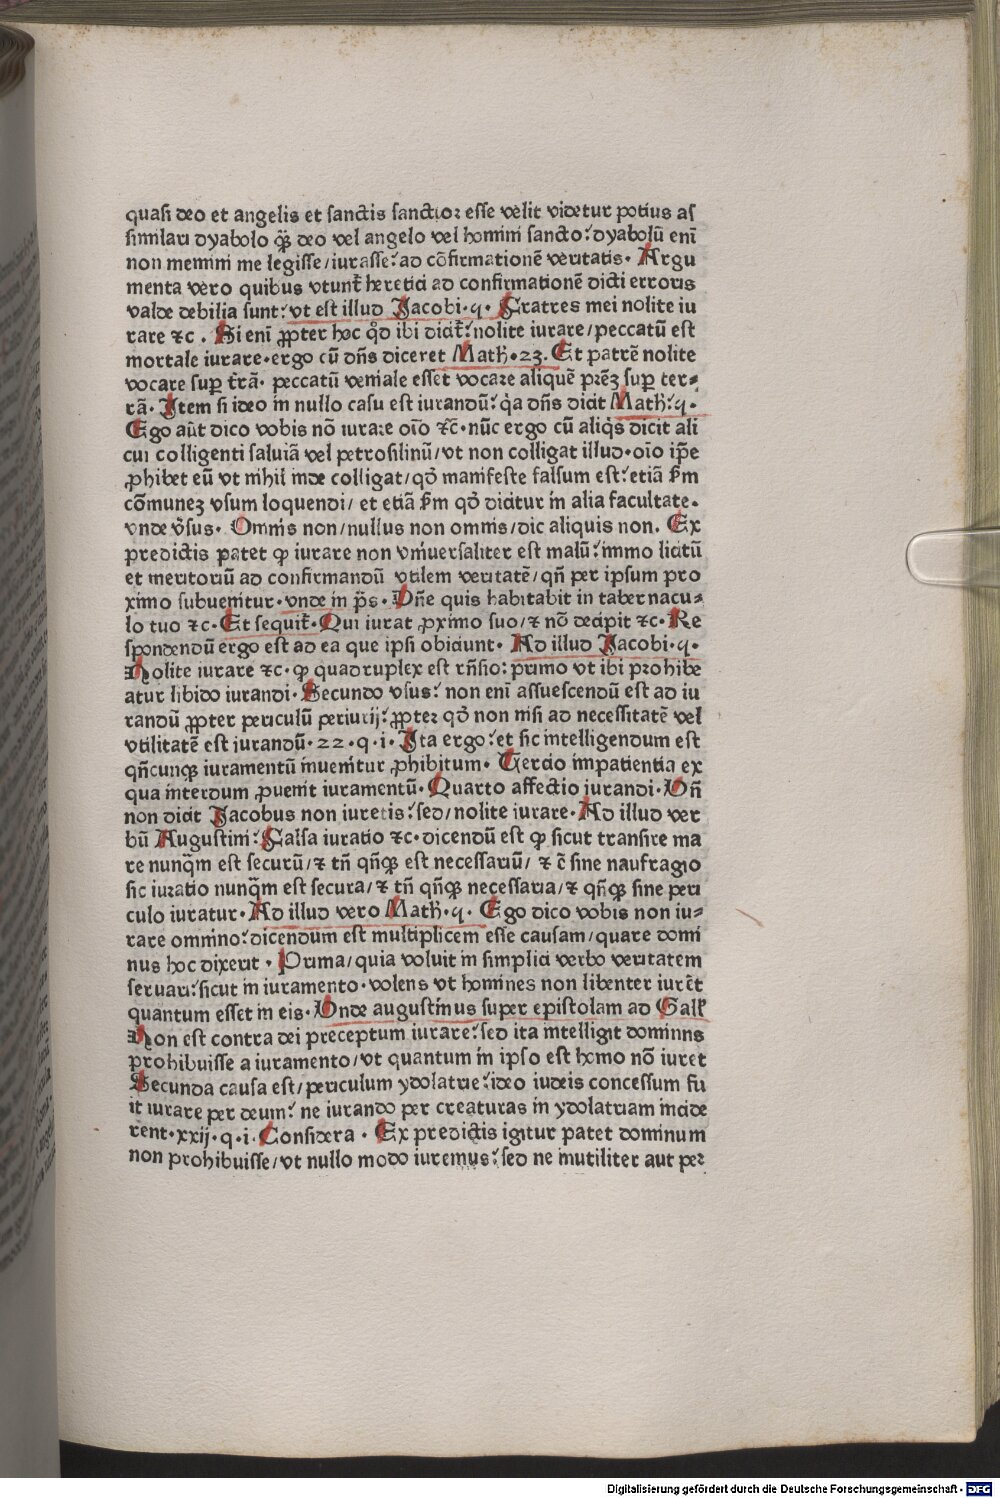 quasi deo et angelis et sanctis sanctior esse velit videtur potius as
similari dyabolo qȝ̃ deo vel angelo vel homini sancto: dyabolū enī
non memini me legisse/iurasse: ad cōfirmationē veritatis. Argu
menta vero quibus vtunt̃ heretici ad confirmationē dicti erroris
valde debilia sunt: vt est illud Jacobi.q. Fratres mei nolite iu
rare ⁊c. Si enī ꝓpter hoc qđ ibi dicit̃: nolite iurare/peccatū est
mortale iurare.ergo cū dñs diceret Math̃.23. Et patrē nolite
vocare suꝑ t̃rã. peccatū veniale esset vocare aliquē prēȝ suꝑ ter⸗
rã. Item si ideo in nullo casu est iurandū: q̃a dñs dicit Math̃:q.
Ego aũt dico vobis nō iurare oīo ⁊c̃.nūc ergo cū aliq̃s dicit ali
cui colligenti saluiã vel petrosilinū/vt non colligat illud.oīo ip̃e
ꝓhibet eū vt nihil inde colligat/qđ manifeste falsum est: etiã s̃m
cōmuneȝ vsum loquendi/ et etiã s̃m qđ dicitur in alia facultate.
vnde v̾sus. Omnis non/nullus non omnis/dic aliquis non. Ex
predictis patet ꝙ iurare non vniuersaliter est malū: immo licitū
et meritoriū ad confirmandū vtilem veritatē/qñ per ipsum pro
ximo subuenitur.vnde in p̃s. Dñe quis habitabit in tabernacu⸗
lo tuo ⁊c.Et sequit̃.Qui iurat ꝓximo suo/⁊ nō decipit ⁊c.Re
spondendū ergo est ad ea que ipsi obiciunt. Ad illud Jacobi.q.
Nolite iurare ⁊c.ꝙ quadruplex est rñsio: primo vt ibi prohibe
atur libido iurandi.Secundo vsus: non enī assuescendū est ad iu
randū ꝓpter periculū periurij: ꝓpter qđ non nisi ad necessitatē vel
vtilitatē est iurandū.22.q.i.Ita ergo: et sic intelligendum est
qñcunqȝ iuramentū inuenitur ꝓhibitum. Tercio impatientia ex
qua interdum ꝓuenit iuramentū.Quarto affectio iurandi.Vñ
non dicit Jacobus non iuretis: sed/nolite iurare.Ad illud ver
bū Augustini: Falsa iuratio ⁊c.dicendū est ꝙ sicut transire ma
re nunq̃m est securū/⁊ tñ qñqȝ est necessariū/ ⁊ c̃ sine naufragio
sic iuratio nunq̃m est secura/⁊ tñ qñqȝ necessaria/⁊ qñqȝ sine peri
culo iuratur.Ad illud vero Math̃.q. Ego dico vobis non iu⸗
rare omnino: dicendum est multiplicem esse causam/quare domi
nus hoc dixerit. Prima/quia voluit in simplici verbo veritatem
seruari: sicut in iuramento.volens vt homines non libenter iurēt
quantum esset in eis.Vnde augustinus super epistolam ad Gall̃
Non est contra dei preceptum iurare: sed ita intelligit dominns
prohibuisse a iuramento/vt quantum in ipso est homo nō iuret
Secunda causa est/periculum ydolatrie: ideo iudeis concessum fu
it iurare per deum: ne iurando per creaturas in ydolatriam incide
rent.xxij.q.i.Considera. Ex predictis igitur patet dominum
non prohibuisse/vt nullo modo iuremus: sed ne inutiliter aut per
Digitalisierung gefördert durch die Deutsche Forschungsgemeinschaft - DFG